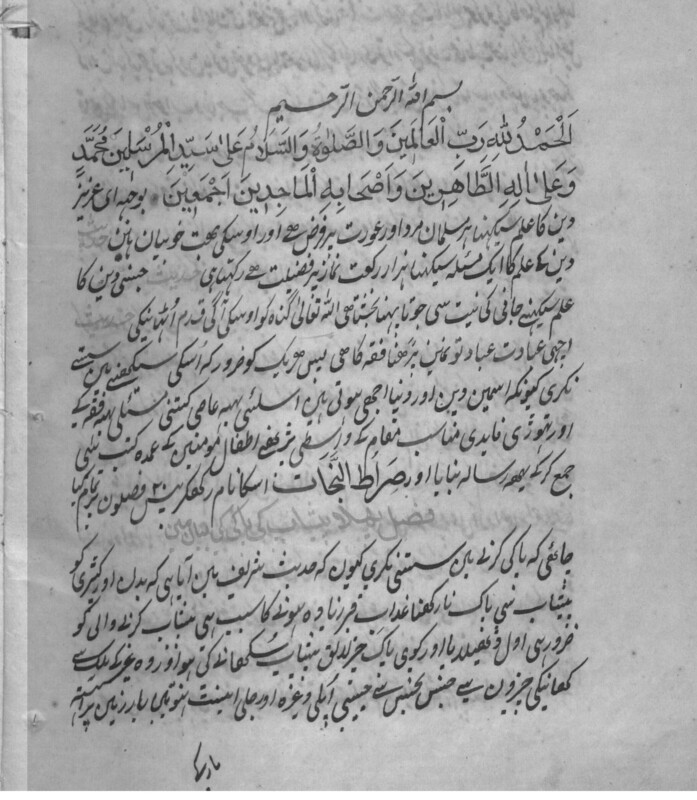 بسم الله الرحمن الرحیم
اَلْحَمْدُ لِلّٰهِ رَبِّ الْعَالَمِینَ وَالصَّلٰوةُ وَالسَّلَامُ عَلٰی سَیِّدِ الْمُرْسَلِینَ مُحَمَّدٍ
وَعَلٰی اٰلِهِ الطَّاهِرِینَ وَاَصْحَابِهِ الْمَاجِدِینَ اَجْمَعِینَ ای عزیز
دین کا علم سیکہنا ہر مسلمان مرد اور عورت پر فرض ہے اور اوسکی بہت خوبیان ہین
دین کے علم کا ایک مسئلہ سیکہنا ہزار رکعت نماز پر فضیلت رکہتا ہی دین کا
علم سیکہنے جانی کی نیت سی جوتا پہنا بخشتا ہی الله تعالیٰ گناہ کو اوسکی آگی قدم اُٹہانیکی
اچہی عبادت پڑہنا فقہ کا ہی پس ہر یک کو ضرور کہ اُسکی سیکہنے مین سستے
نکری کیونکہ اسمین دین اور دنیا اچہی ہوتی ہین اسلئی یہہ عاصی کیتنی مسئلی یہہ فقہ کے
اور تہوڑی فایدی مناسب مقام کے واسطی اطفال مومنین کے عمدہ کتب سی
جمع کر کے یہہ رسالہ بنایا اور صِرَاطُ النَّجَات اسکا نام رکہکر بیس ۲۰ فصلون پر تمام کیا
فصل پہلا پیشاب کی پاکی کی بیان مین
پاکی کرنے مین سستی نکری کیون کہ حدیث شریف مین آیا ہی کہ بدن اور کپڑی کو
پیشاب سی پاک نا رکہنا عذاب قبر زیادہ ہونے کا سبب ہی پیشاب کرنے والی کو
ضرور ہی اول یا اور کوی پاک چیز لایق پیشاب سُکہانے کی ہو اور وہ
کہانیکی چیزون سے جنس نہو
بارہا